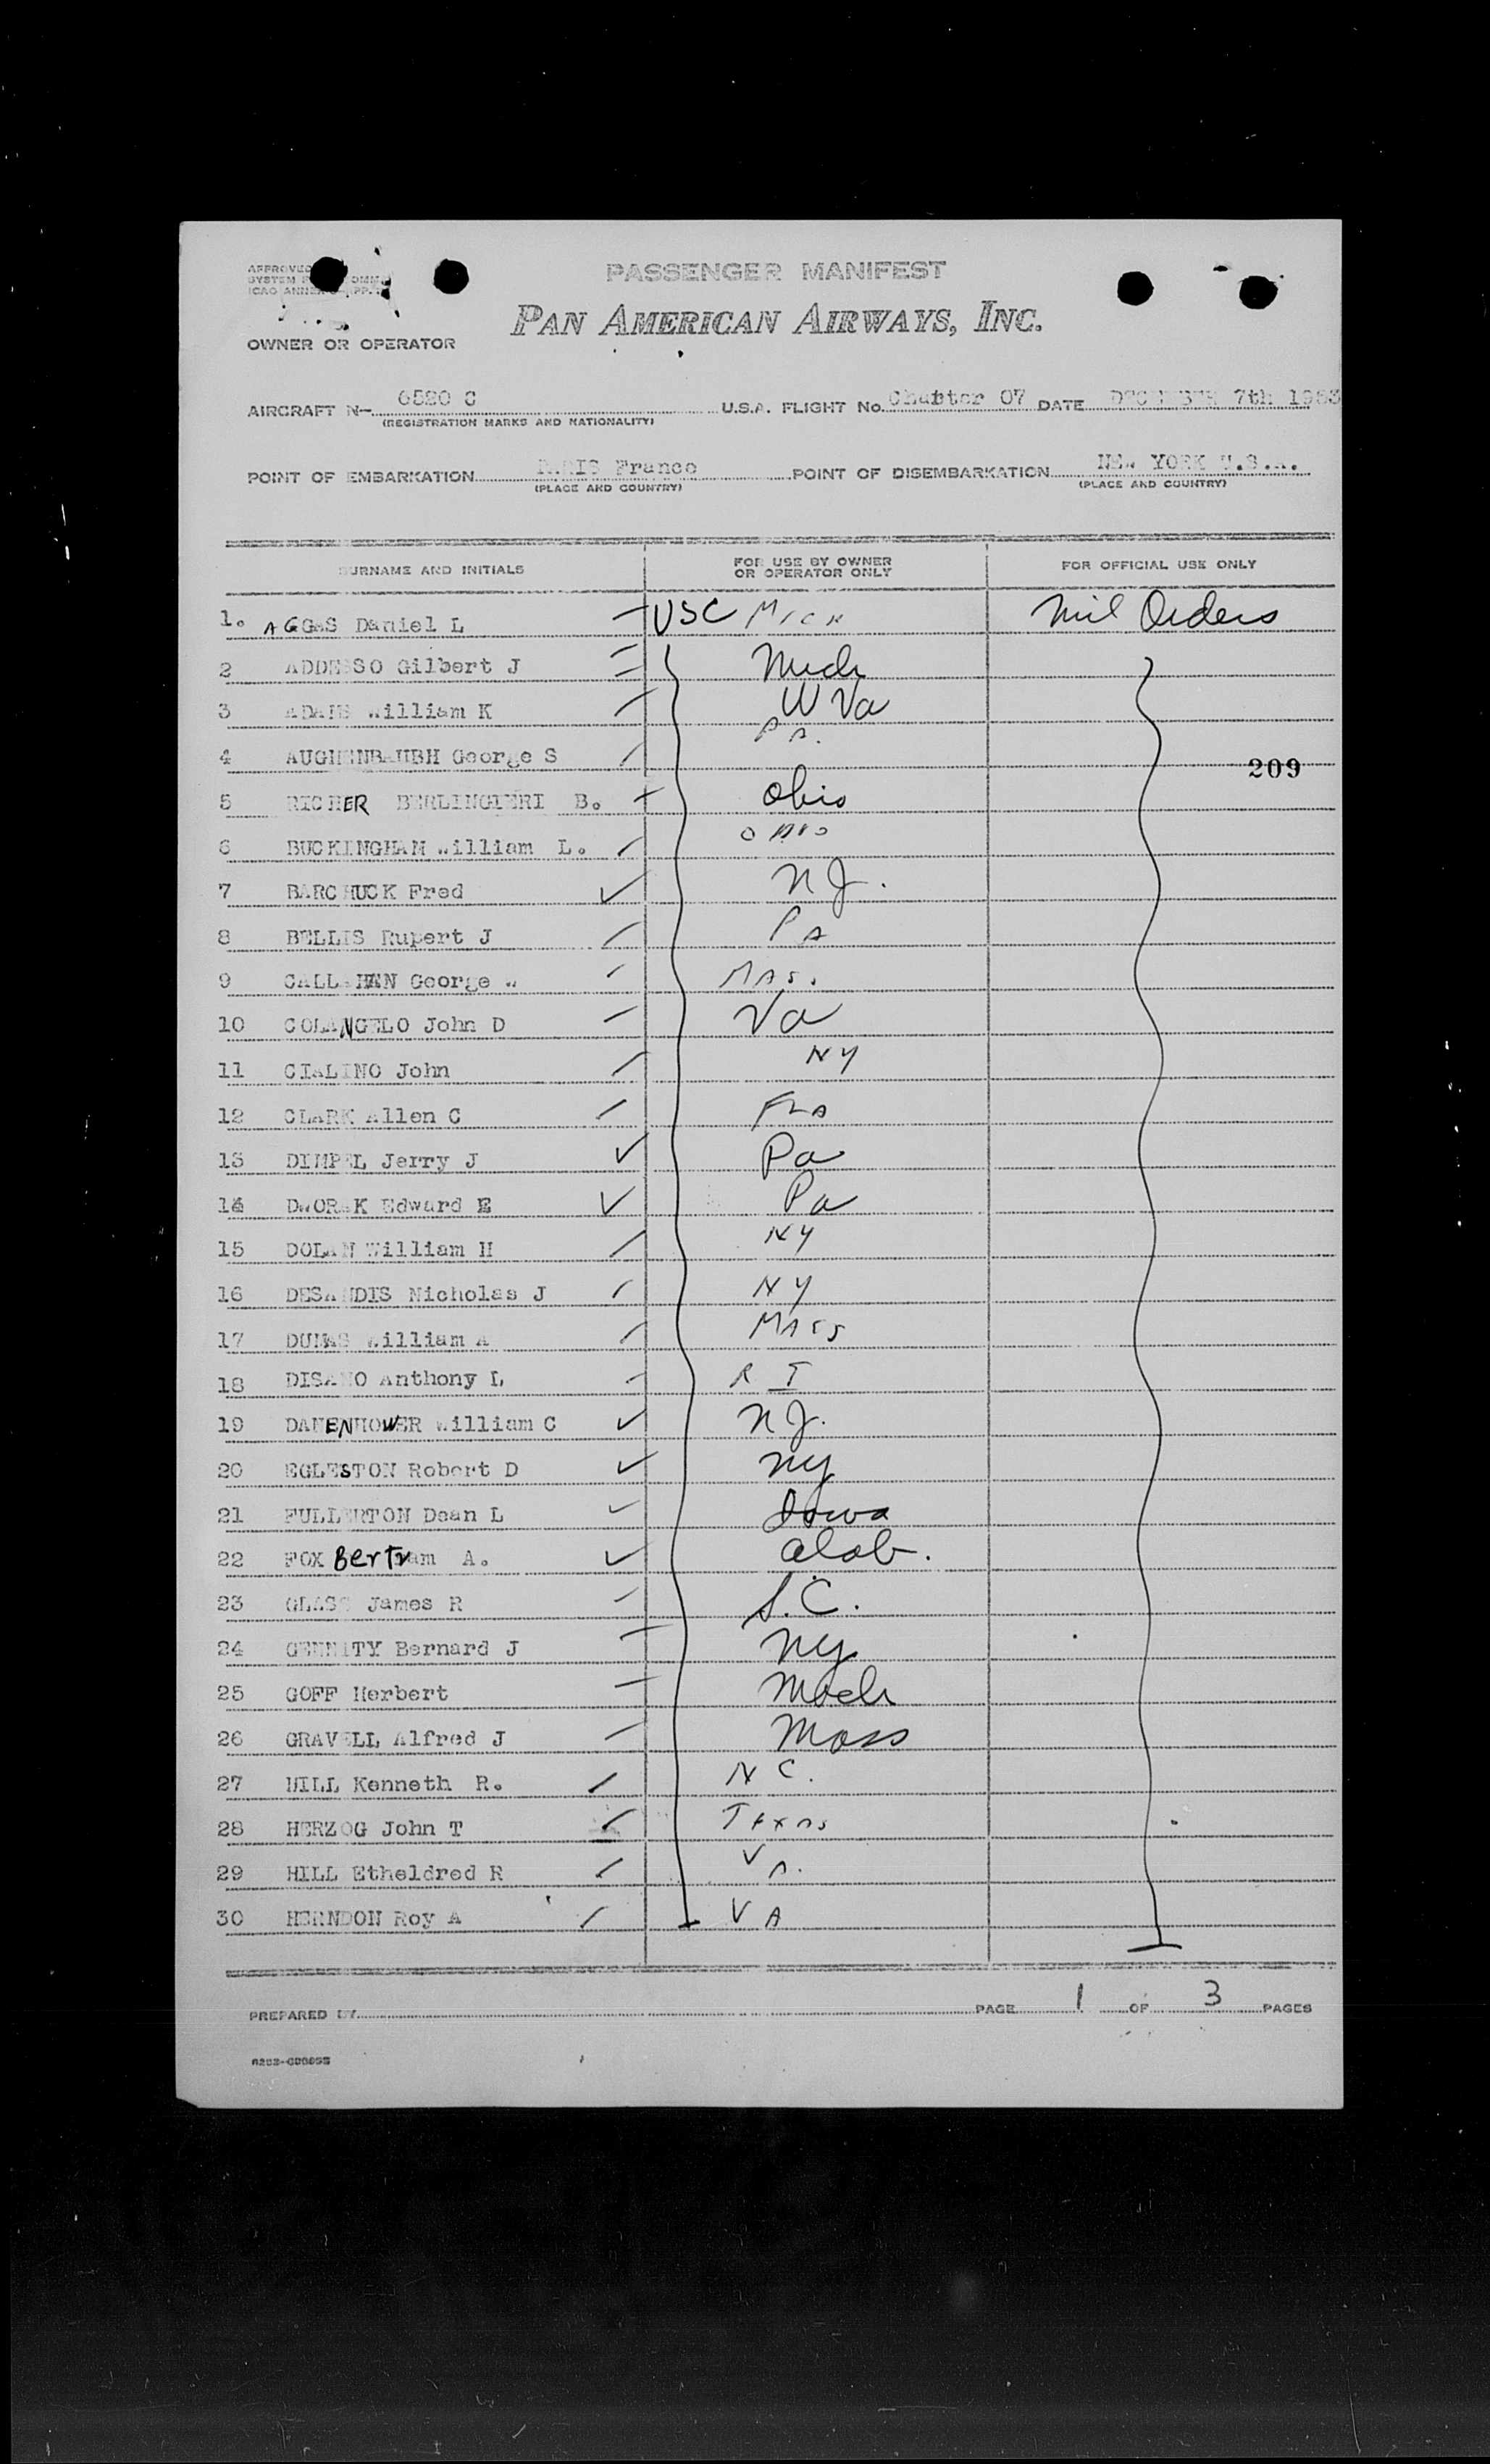 PASSENGER MANIFEST
PAN AMERICAN AIRWAYS, INC.
OWNER OR OPERATOR
AIRCRAFT N- 6520 C U.S.A. FLIGHT No. Charter 07 DATE DECEMBER 7th 1953
(REGISTRATION MARKS AND NATIONALITY)
POINT OF EMBARKATION PARIS France POINT OF DISEMBARKATION NEW YORK U.S.A.
(PLACE AND COUNTRY) (PLACE AND COUNTRY)
SURNAME AND INITIALS FOR USE BY OWNER OR OPERATOR ONLY FOR OFFICIAL USE ONLY
1. AGGAS Daniel L USC MICH Mil Orders
2 ADDESSO Gilbert J Mich
3 ADAMS William K W Va
4 AUGHENBAUBH George S PA.
209
5 RICHER BERLINGIERI B. Ohio
6 BUCKINGHAM William L. OHIO
7 BARCHUCK Fred NJ.
8 BELLIS Rupert J PA
9 CALLAHAN George W MASS.
10 COLANGELO John D Va
11 CIALINO John NY
12 CLARK Allen C FLA
13 DIMPEL Jerry J Pa
14 DWORAK Edward E Pa
15 DOLAN William H NY
16 DESANDIS Nicholas J NY
17 DUMAS William A MASS
18 DISANO Anthony L R I
19 DANENHOWER William C NJ.
20 EGLESTON Robert D NY
21 FULLERTON Dean L Iowa
22 FOX Bertram A. Alab.
23 GLASS James R S.C.
24 GENNITY Bernard J NY
25 GOFF Herbert Mich
26 GRAVELL Alfred J Mass
27 HILL Kenneth R. N C.
28 HERZOG John T TEXAS
29 HILL Etheldred R VA.
30 HERNDON Roy A VA
PREPARED BY PAGE 1 OF 3 PAGES